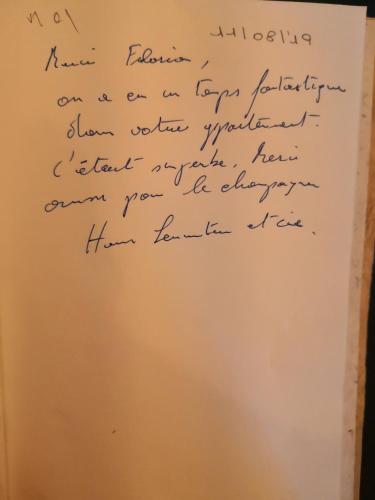 Merci Florian,
on a eu un temps fantastique
dans votre appartement.
C'était superbe. Merci
aussi pour le champagne
et cie.